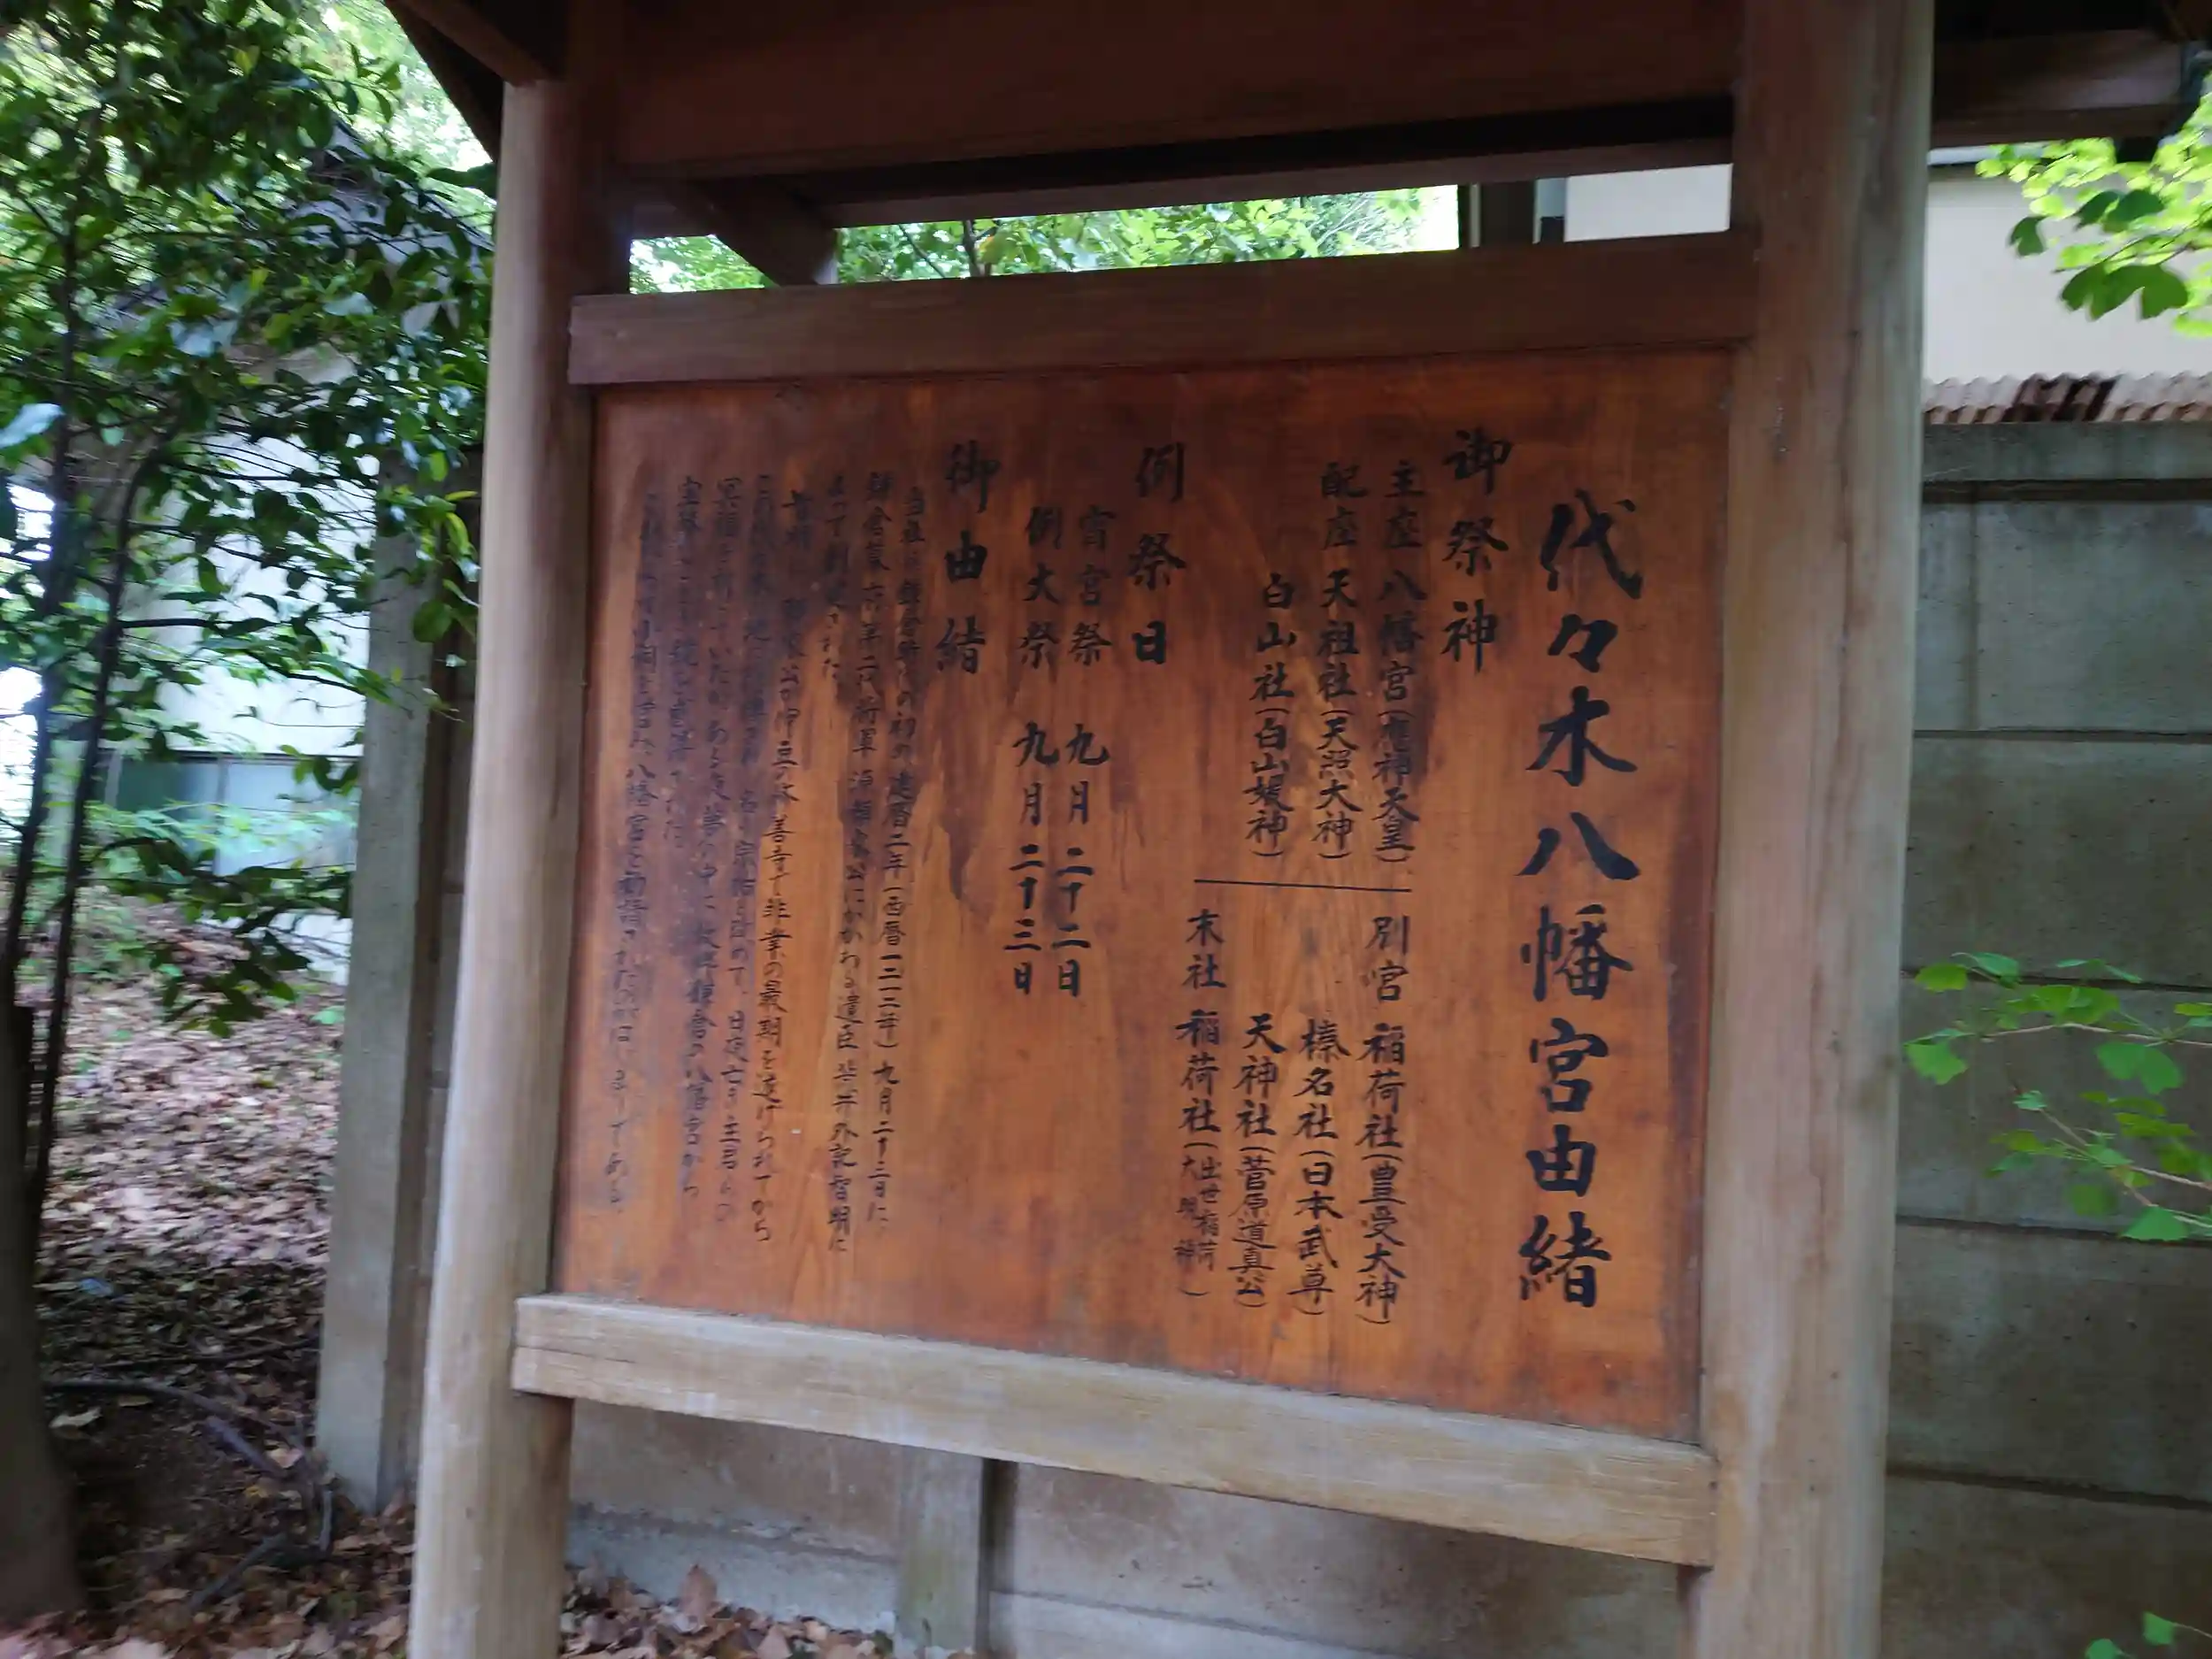 代々木八幡宮由緒
御祭神
主座 八幡宮(應神天皇)
配座 天祖社(天照大神)
白山社(白山媛神)
別宮 稲荷社(豊受大神)
榛名社(日本武尊)
天神社(菅原道真公)
末社 稲荷社(出世稲荷大明神)
例祭日
宵宮祭 九月二十二日
例大祭 九月二十三日
御由緒
当社は鎌倉時代の初め建暦二年(西暦一二一二年)九月二十三日に、
鎌倉幕府第二代将軍源頼家公にかかわる遺臣 荒井外記智明に
よって創祀された
公が伊豆の修善寺で非業の最期を遂げられてから
名も宗祐と改めて、日夜亡き主君の
冥福を祈っていたが、ある夜夢の中に 鎌倉の八幡宮から
宝珠の
小祠を営み、八幡宮を勧請 である